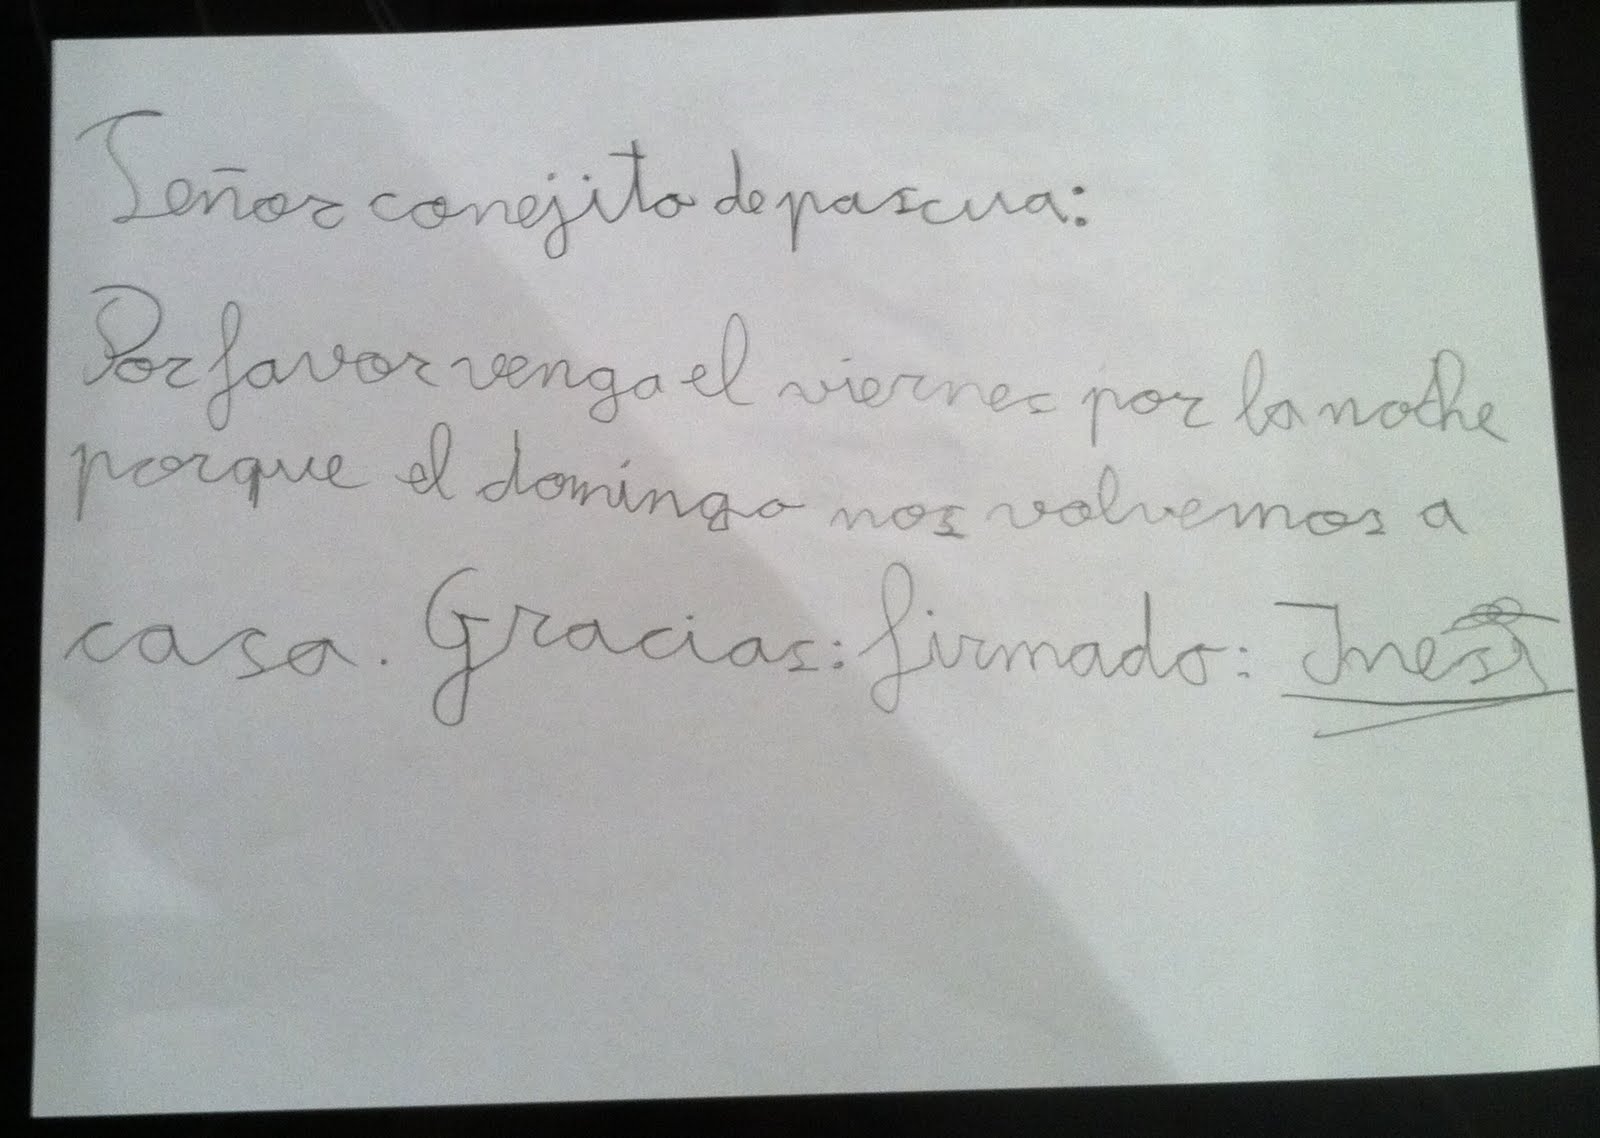 Señor conejito de pascua:
Por favor venga el viernes por la noche
porque el domingo nos volvemos a
casa. Gracias: firmado: Inés